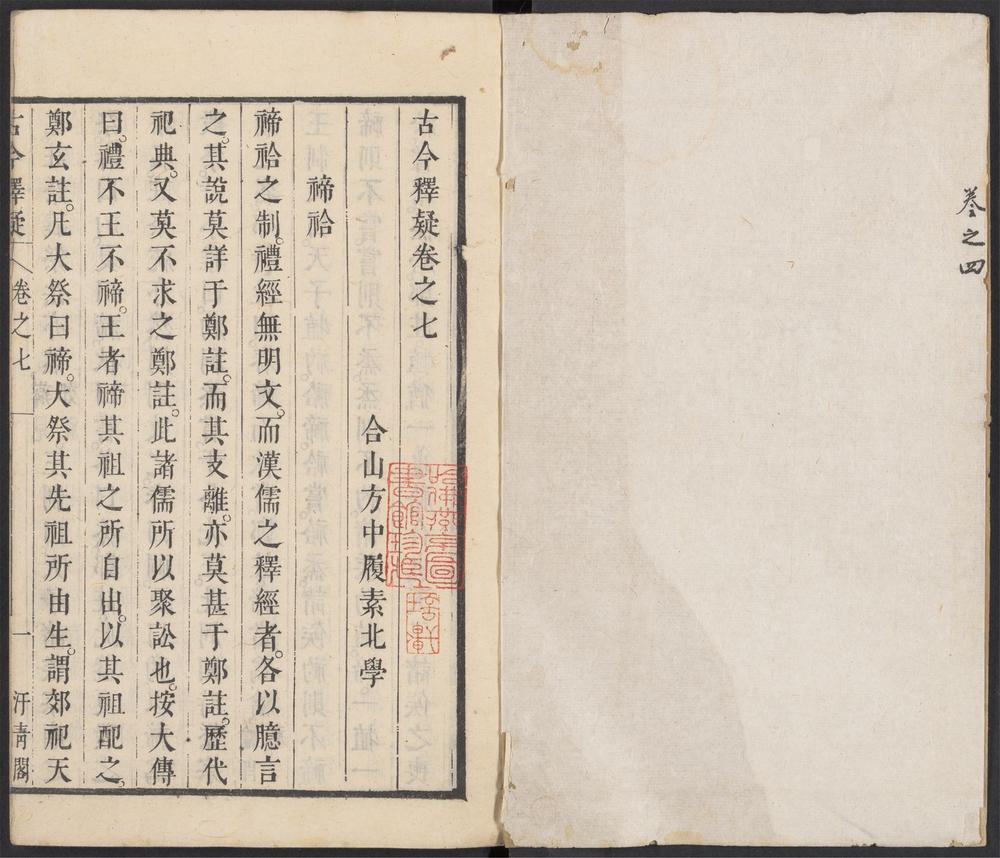 卷之四
古今釋疑卷之七
合山方中履素北學。
禘祫
禘祫之制。禮經無明文。而漢儒之釋經者。各以臆言
之。其說莫詳于鄭註。而其支離。亦莫甚于鄭註。歷代
祀典。又莫不求之鄭註。此諸儒所以聚訟也。按大傳
曰。禮不王不禘。王者禘其祖之所自出。以其祖配之。
鄭玄註。凡大祭曰禘。大祭其先祖所由生。謂郊祀天
古今釋疑 卷之七 一 汗青閣